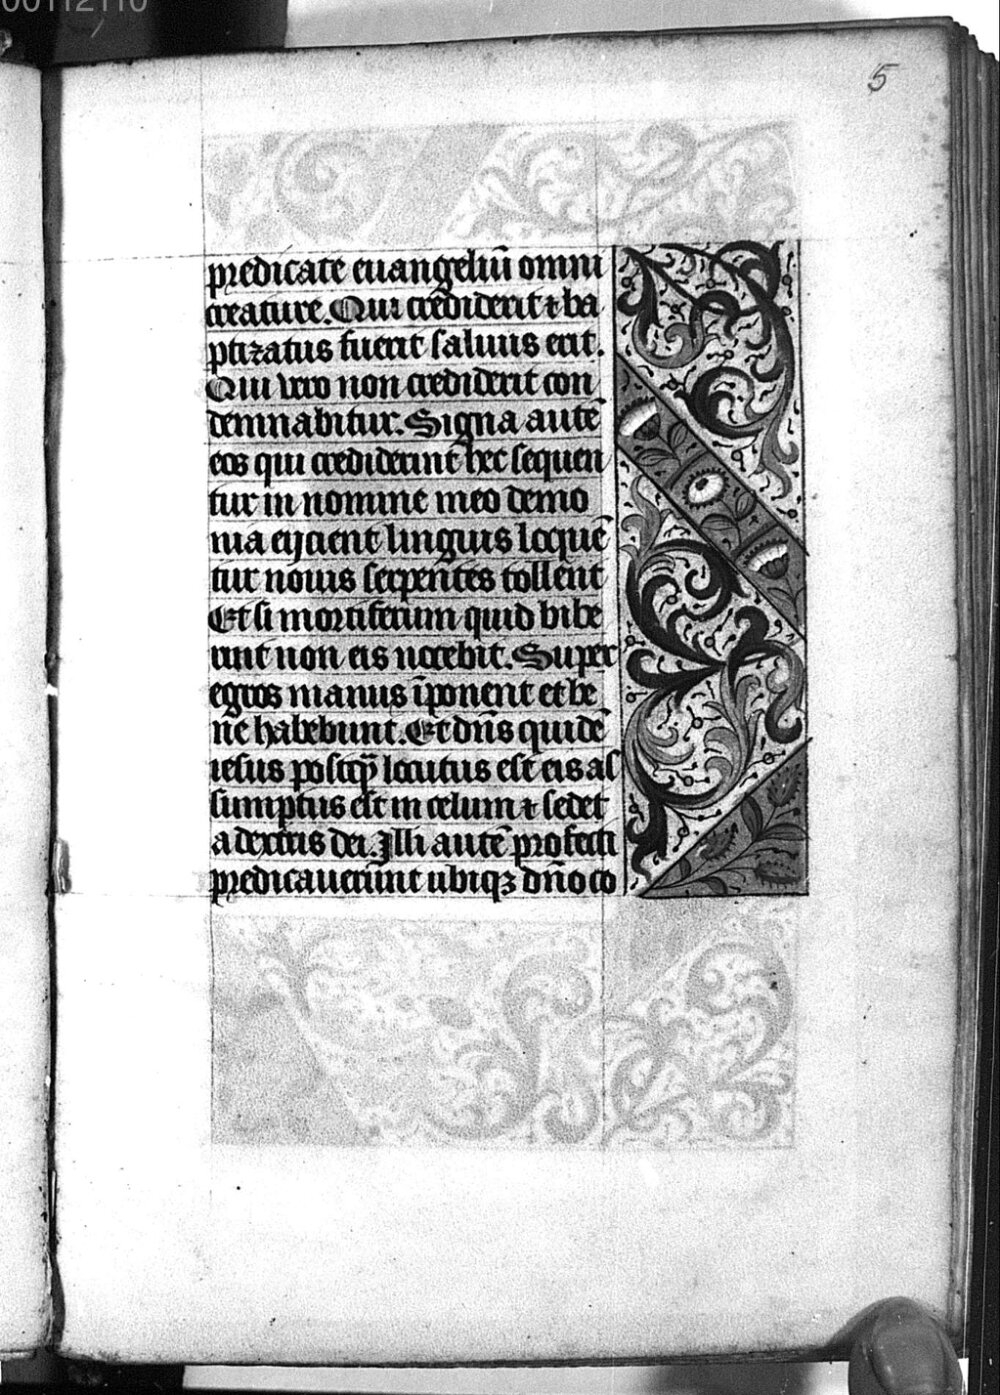 00112110
5
predicate euangeliū omni
creature. Qui crediderit ⁊ ba
ptizatus fuerit saluus erit.
Qui vero non crediderit con
demnabitur. Signa autē
eos qui crediderint hec sequen
tur in nomine meo demo
nia eijcient linguis loquē
tur nouis serpentes tollent
Et si mortiferum quid bibe
rint non eis nocebit. Super
egros manus īponent et be
ne habebunt. Et dn̄s quidē
iesus postq̄ȝ locutus est eis as
sumptus est in celum ⁊ sedet
a dextris dei. Illi autē profecti
predicauerunt ubiqȝ dn̄o co